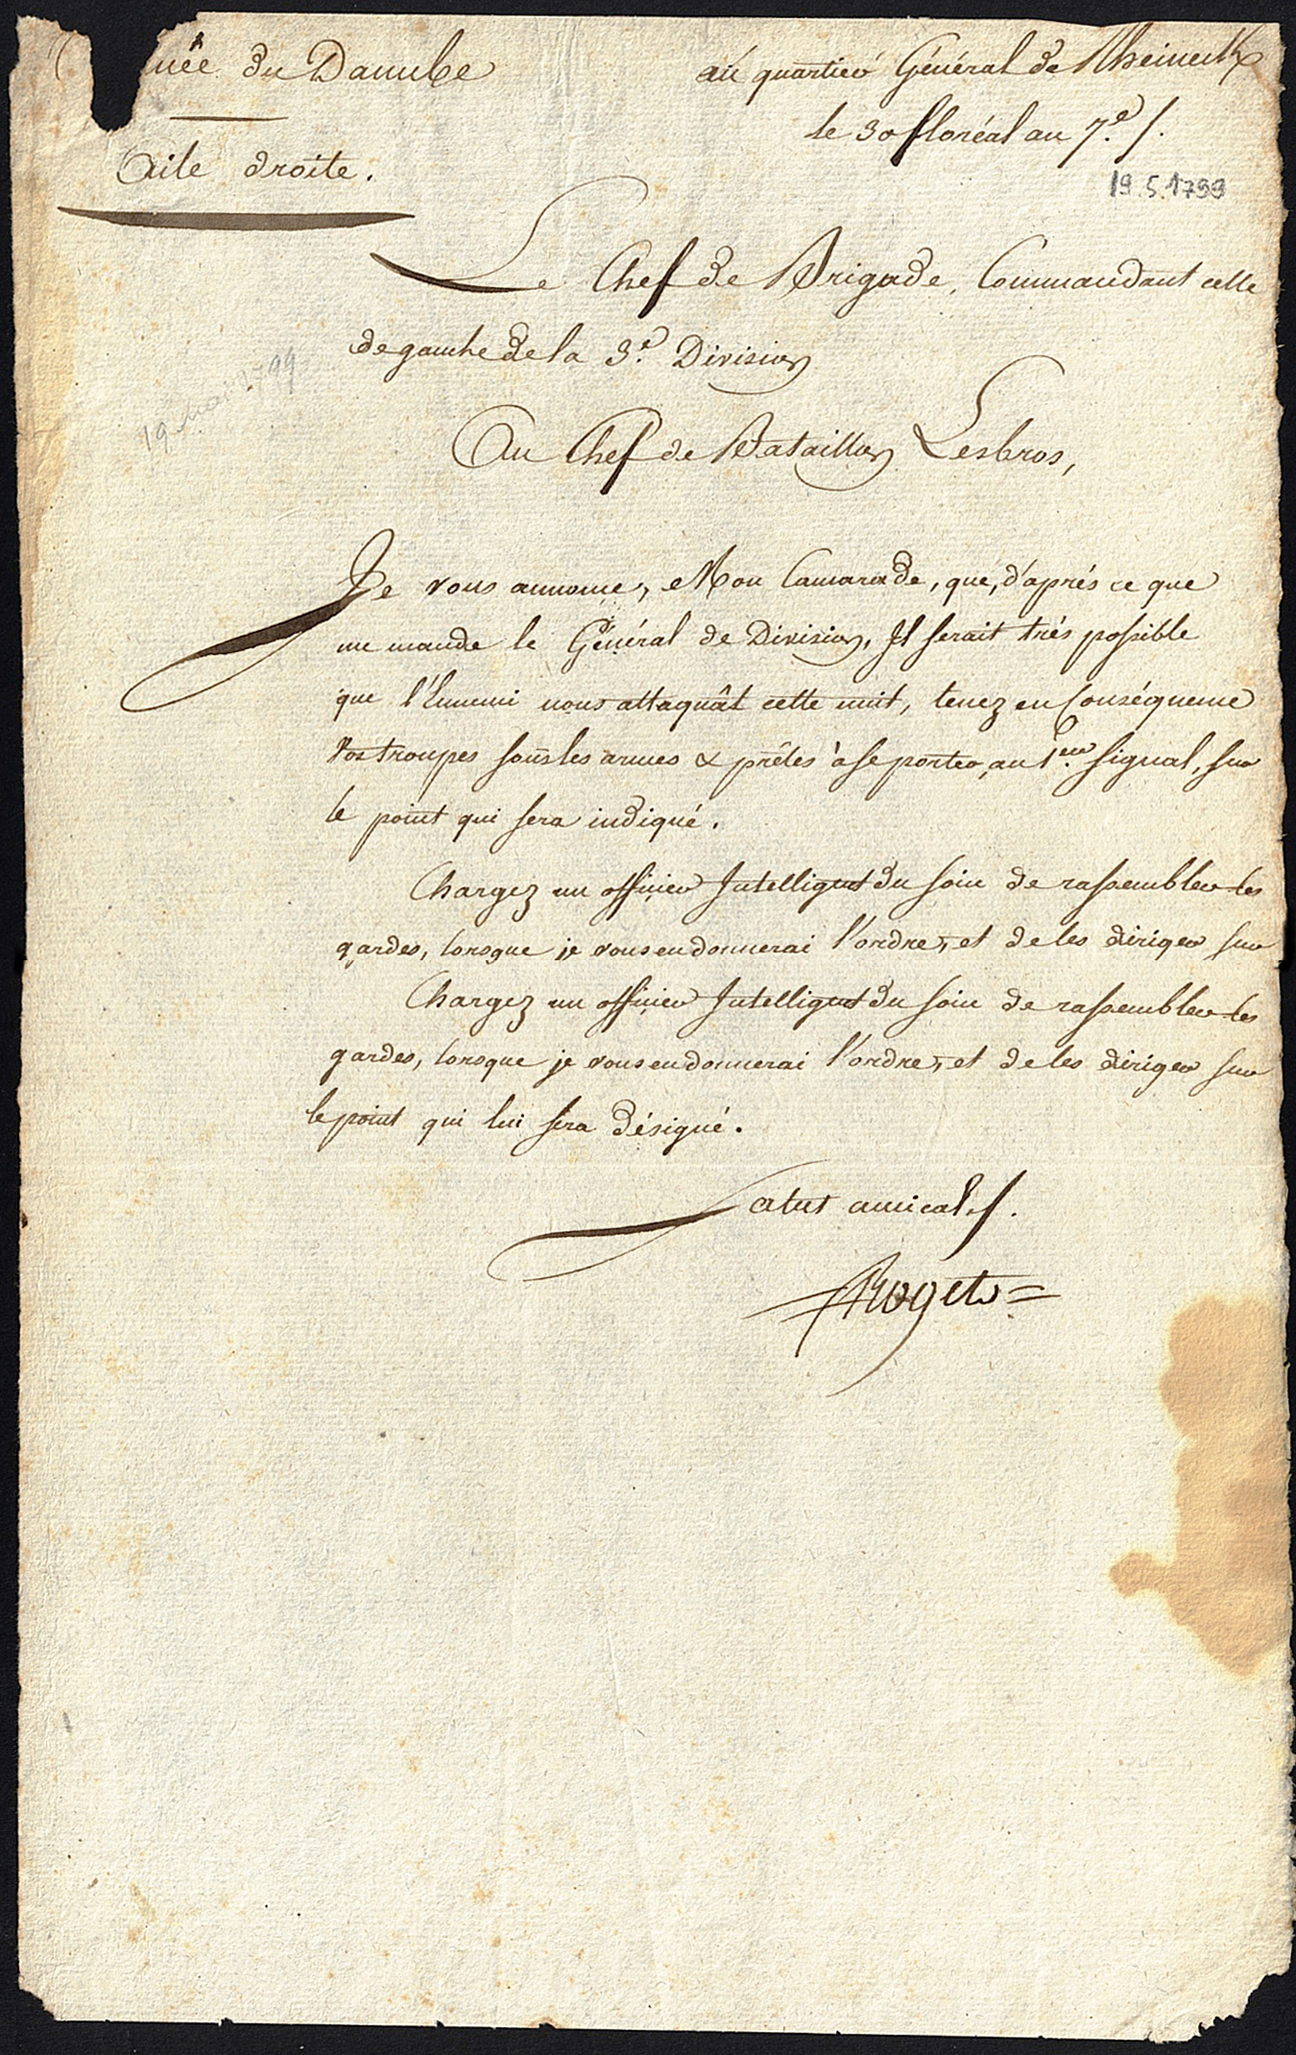 ée du Danube
au quartier Général de Rheineck
le 30 floréal an 7.e /.
Aile droite.
19.5.1799
Le Chef de Brigade, Commandant celle
de gauche de la 3.e Division
19 Mai 1799
Au Chef de Bataillon Lesbros,
Je vous annonce, Mon Camarade, que, d'aprés ce que
me mande le Général de Division, Il serait trés possible
que l'Ennemi nous attaquât cette nuit, tenez en Conséquence
Vos troupes sous les armes & prêtes à se porter, au 1.er signal, sur
le point qui sera indiqué.
Chargez un officier Intelligent du soin de rassembler les
gardes, lorsque je vous en donnerai l'ordre, et de les diriger sur
Chargez un officier Intelligent du soin de rassembler les
gardes, lorsque je vous en donnerai l'ordre, et de les diriger sur
le point qui lui sera désigné.
Salut amical /.
Roget